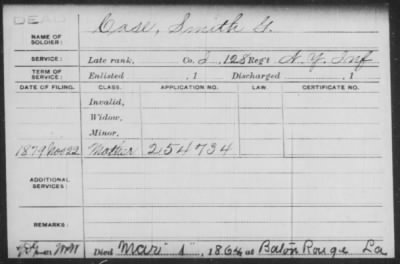 DEAD
NAME OF SOLDIER: Case, Smith G.
SERVICE: Late rank, Co. I, 128 Reg't N.Y. Inf
TERM OF SERVICE: Enlisted , 1 Discharged , 1
DATE OF FILING. CLASS. APPLICATION NO. LAW. CERTIFICATE NO.
Invalid,
Widow,
Minor,
1879 Nov 22 Mother 254734
ADDITIONAL SERVICES:
REMARKS:
Died Mar 1, 1864 at Baton Rouge La